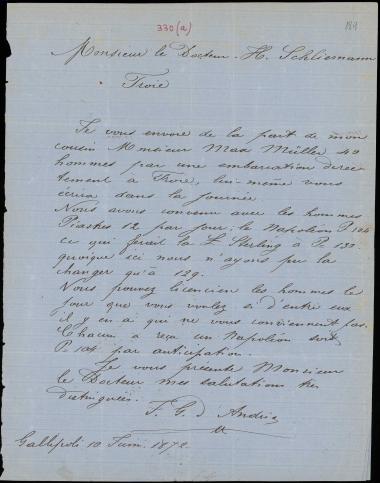 330(a)
184
Monsieur le Docteur H. Schliemann
Troie
Je vous envoie de la part de mon
cousin Monsieur Max Müller 40
hommes par une embarcation direc
tement à Troie, lui-même vous
écrira dans la journée.
Nous avons convenu avec les hommes
Piastres 12 par jour; le Napoléon P. 104
ce qui ferait la £ Sterling à P. 130
quoique ici nous n'ayons pu la
changer qu'à 129.
Vous pouvez licencier les hommes le
jour que vous voulez si d'entre eux
il y en a qui ne vous conviennent pas.
Chacun a reçu un Napoléon soit
P. 104. par anticipation.
Je vous présente Monsieur
le Docteur mes salutations très
distinguées.
F. G. d Andria
Gallipoli 10 Juin 1872.